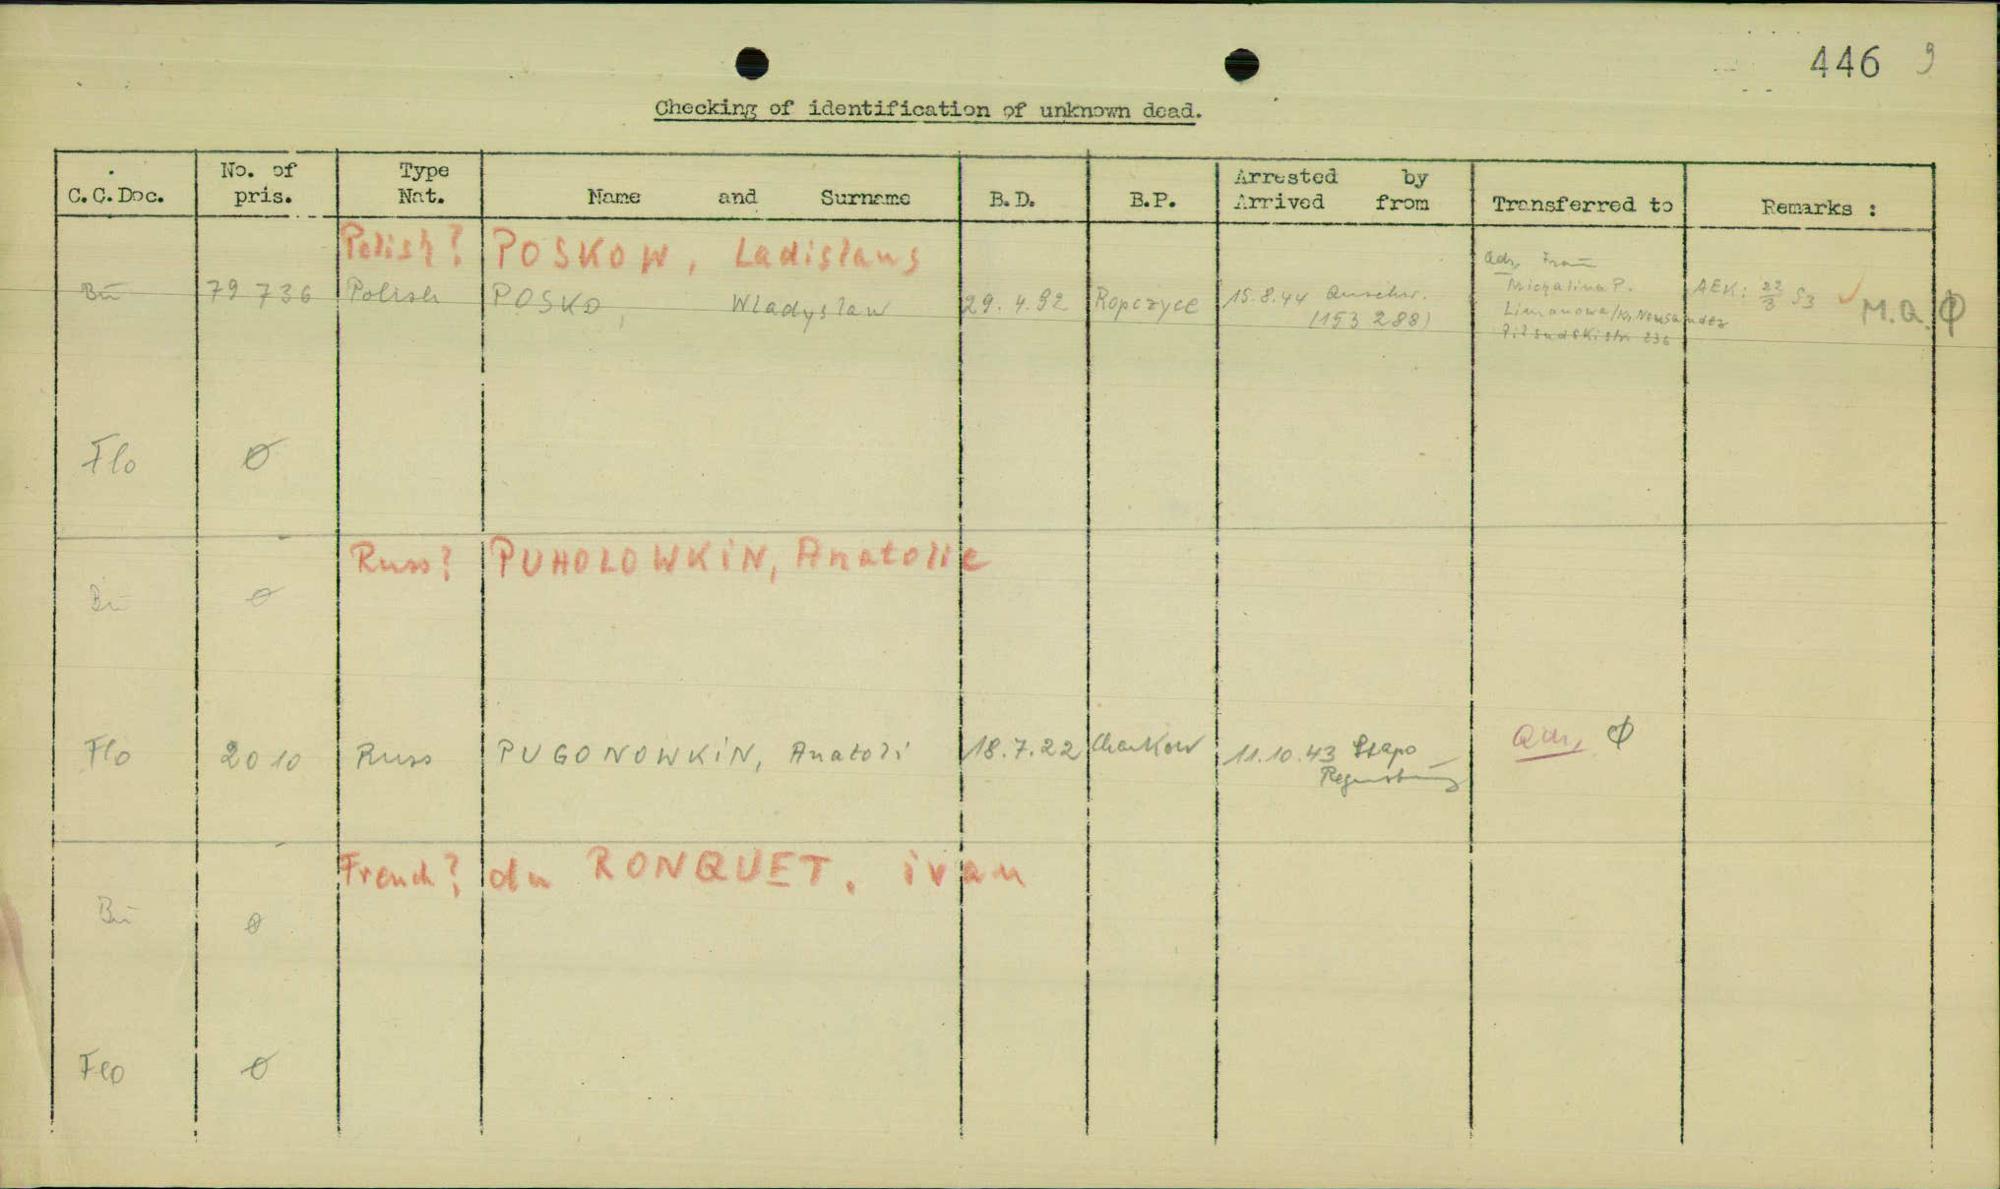 446 9
Checking of identification of unknown dead.
C.C.Doc. No. of pris. Type Nat. Name and Surname B.D. B.P. Arrested by Arrived from Transferred to Remarks :
Polish? POSKOW, Ladislaus
Bu 79 736 Polish POSKO, Wladyslaw 29. 4. 92 Ropczyce 15.8.44 Auschw. (153 288)
Adr. Frau
Michalina P.
Limanowa/Kr. Neusandez
Pilsudskistr 236
AEK: 22/3 53 M.A. Ø
Flo Ø
Russ? PUHOLOWKIN, Anatolie
Bu Ø
Flo 2010 Russ PUGONOWKIN, Anatoli 18.7.22 Charkow 11.10.43 Stapo Regensburg Adr. Ø
French? du RONQUET. ivan
Bu Ø
Flo Ø